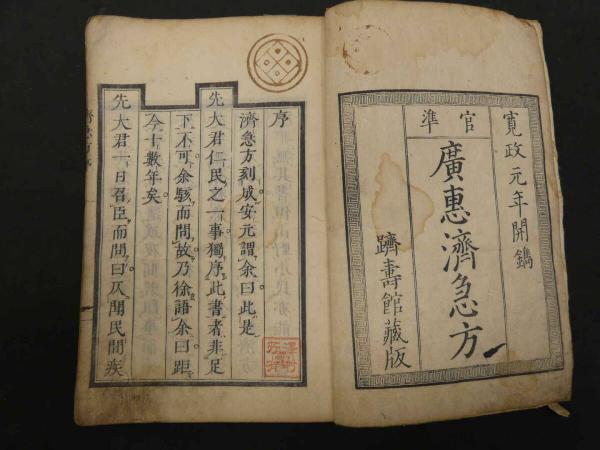 寛政元年開鐫
官準
廣惠濟急方
躋壽館藏版
序
濟急方刻成安元謂余曰此是
先大君仁民之一事獨序此書者非足
下不可余駭而問故乃徐語余曰距
今十數年矣
先大君一日召臣而問曰仄聞民間疾